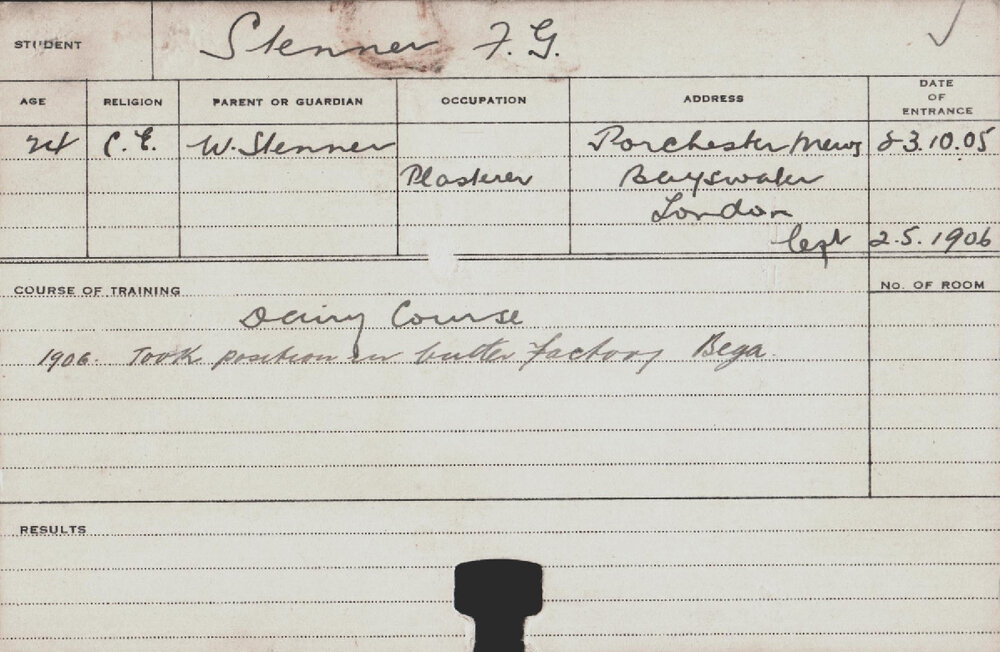 STUDENT Stenner F. G. ✓
AGE RELIGION PARENT OR GUARDIAN OCCUPATION ADDRESS DATE OF ENTRANCE
24 C.E. W. Stenner Porchester Mews 23.10.05
Plasterer Bayswater
London
left 2.5.1906
COURSE OF TRAINING No. OF ROOM
Dairy Course
1906. Took position in butter factory Bega.
RESULTS